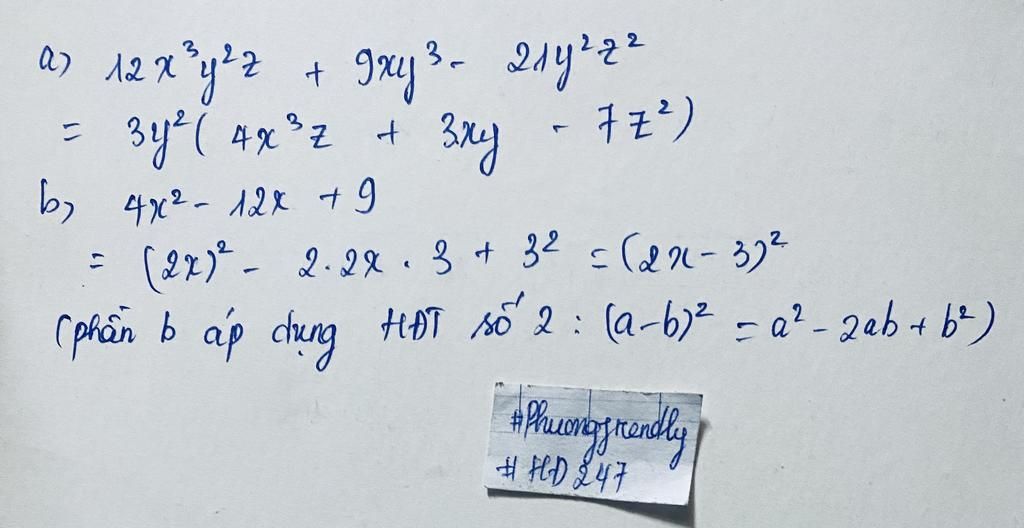 a) 12x³y²z + 9xy³ - 21y²z²
= 3y²( 4x³z + 3xy - 7z²)
b) 4x² - 12x + 9
= (2x)² - 2.2x . 3 + 3² = (2x - 3)²
(phần b áp dụng HĐT số 2 : (a-b)² = a² - 2ab + b²)
#Phuongfrendly
# HD 247